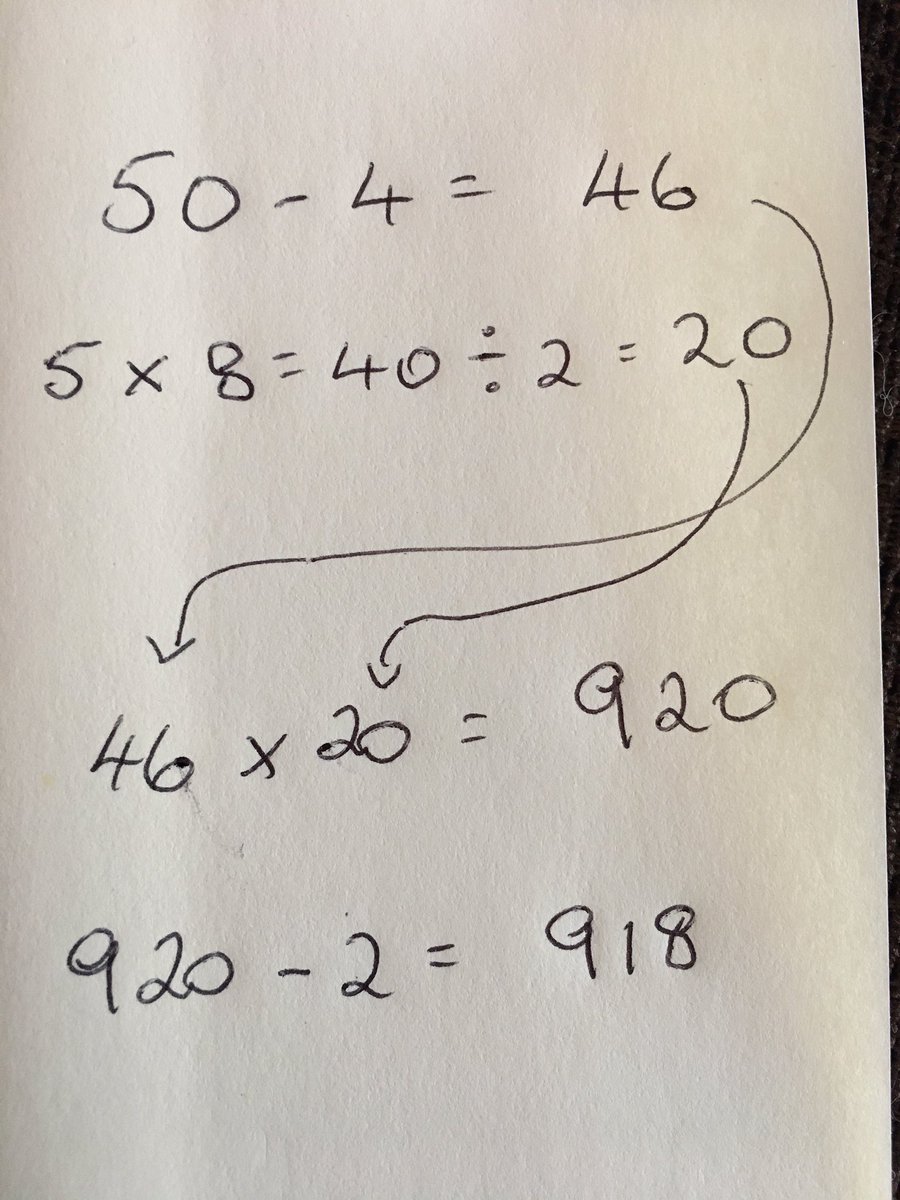 50 - 4 = 46
5 x 8 = 40 ÷ 2 = 20
46 x 20 = 920
920 - 2 = 918